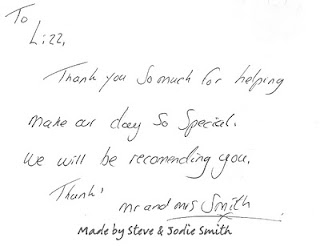 To
Lizz,
Thank you so much for helping
make our day so special.
we will be recomending you.
Thank'
mr and mrs Smith
Made by Steve & Jodie Smith